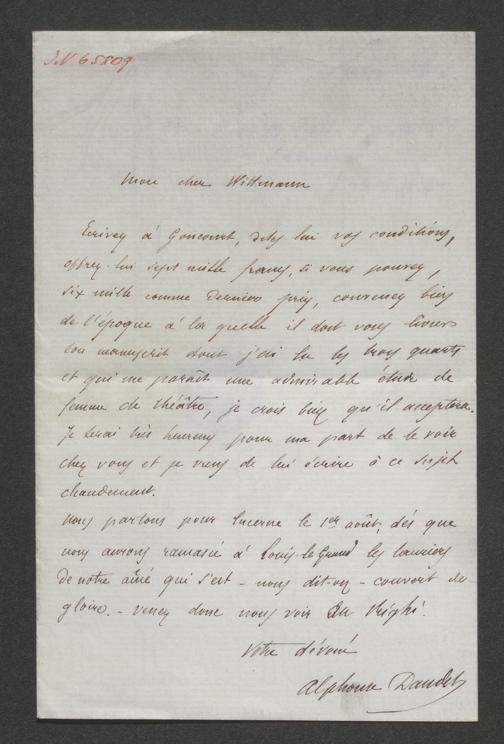 I.N 65809
Mon cher Wittmann
Ecrivez à Goncourt, dites lui vos conditions,
offrez-lui sept mille francs, si vous pouvez,
six mille comme dernier prix, convenez bien
de l'époque à la quelle il doit vous livrer
son manuscrit dont j'ai lu les trois quarts
et qui me paraît une admirable étude de
femme de théâtre, je crois bien qu'il acceptera.
Je serai très heureux pour ma part de le voir
chez vous et je viens de lui écrire à ce sujet
chaudement.
Nous partons pour Lucerne le 1er août, dès que
nous aurons ramassé à Louis-le-Grand les lauriers
de notre aîné qui s'est - nous dit-on - couvert de
gloire. - venez donc nous voir au Rhighi.
Votre dévoué
Alphonse Daudet